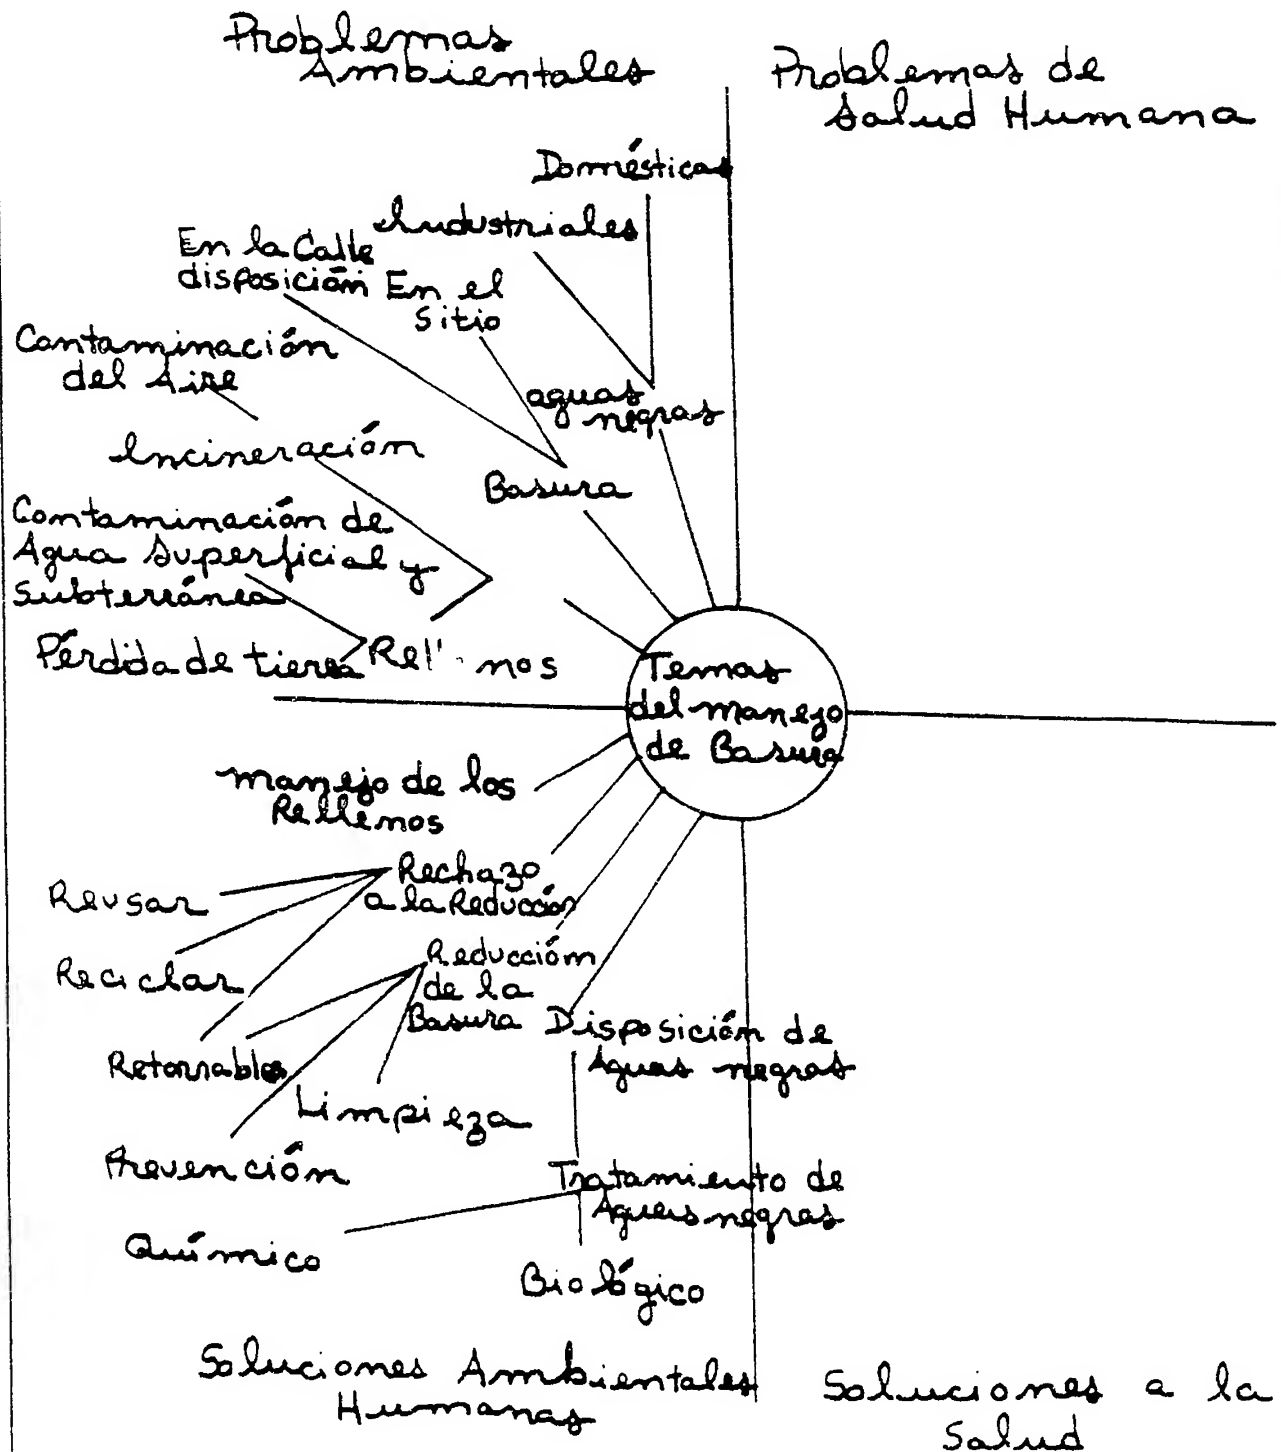 Problemas
Ambientales
Problemas de
Salud Humana
Domésticas
Industriales
En la Calle
disposición
En el
Sitio
Contaminación
del Aire
aguas
negras
Incineración
Basura
Contaminación de
Agua Superficial y
Subterránea
Pérdida de tierra
Temas
del manejo
de Basura
manejo de los
Rellenos
Rechazo
a la Reducción
Reusar
Reciclar
Reducción
de la
Basura
Disposición de
Aguas negras
Retornables
Limpieza
Prevención
Tratamiento de
Aguas negras
Químico
Biológico
Soluciones Ambientales
Humanas
Soluciones a la
Salud